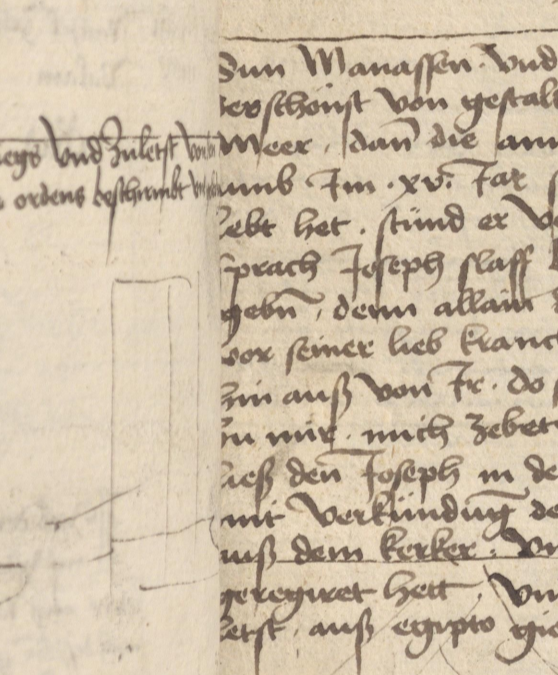 wegs vnd zuletst von
ordens beschirmbt
Sun Manassen · vnd
erschönst von gestal
Meer · dan̄ die ann
umb Im · xv · Jar
lebt het · stůnd er
sprach Joseph slaff
gebn̄ · denn allain
vor seiner lieb kranc
hin auß von Ir · do
zu mir · mich zebet
ließ den̄ Joseph in de
mit verkündūg de
auß dem kerker · vn
geregiret hett · vn
letst · auß egipto gie